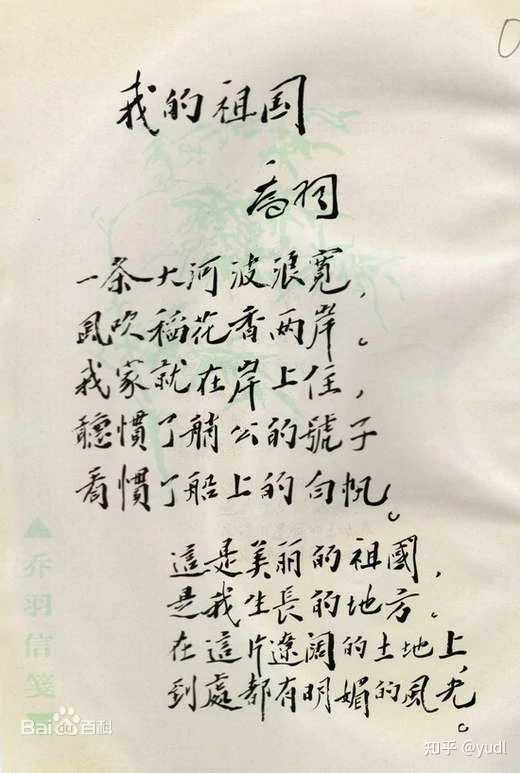 我的祖国
喬羽
一条大河波浪寬，
風吹稻花香两岸。
我家就在岸上住，
聽慣了艄公的號子
看慣了船上的白帆。
這是美丽的祖國，
是我生長的地方。
在這片遼阔的土地上，
到處都有明媚的風光。
乔羽信笺
Bai百科
知乎 @yudl